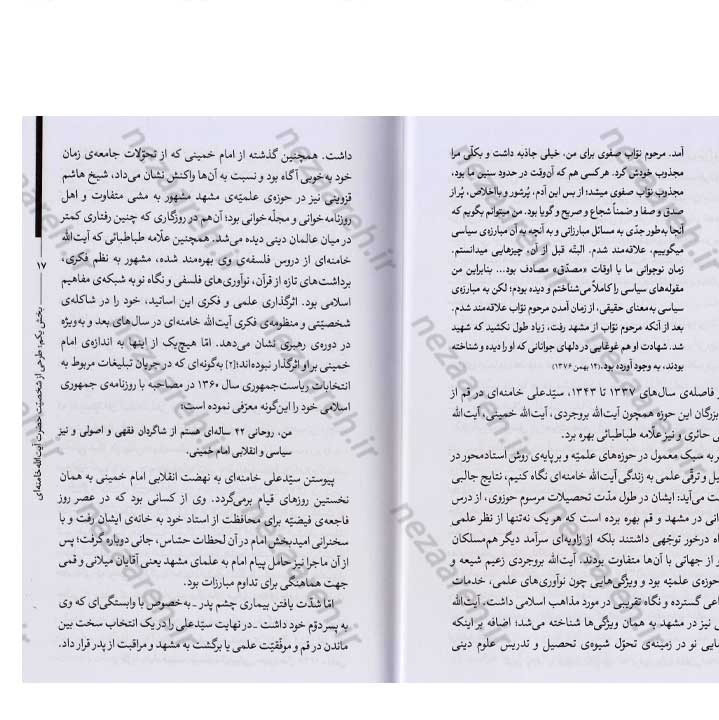 آمد. مرحوم نوّاب صفوی برای من، خیلی جاذبه داشت و بکلّی مرا
مجذوب خودش کرد. هرکسی هم که آن‌وقت در حدود سنین ما بود،
مجذوب نوّاب صفوی میشد؛ از بس این آدم، پُرشور و بااخلاص، پُر از
صدق و صفا و ضمناً شجاع و صریح و گویا بود. من میتوانم بگویم که
آنجا به‌طور جدّی به مسائل مبارزاتی و به آنچه به آن مبارزه‌ی سیاسی
میگوییم، علاقه‌مند شدم. البتّه قبل از آن، چیزهایی میدانستم.
زمان نوجوانی ما با اوقات «مصدّق» مصادف بود... بنابراین من
مقوله‌های سیاسی را کاملاً می‌شناختم و دیده بودم؛ لکن به مبارزه‌ی
سیاسی به‌معنای حقیقی، از زمان آمدن مرحوم نوّاب علاقه‌مند شدم.
بعد از آنکه مرحوم نوّاب از مشهد رفت، زیاد طول نکشید که شهید
شد. شهادت او هم غوغایی در دلهای جوانانی که او را دیده و شناخته
بودند، به وجود آورده بود. (۱۴ بهمن ۱۳۷۶)
فاصله‌ی سال‌های ۱۳۳۷ تا ۱۳۴۳، سیّدعلی خامنه‌ای در قم از
بزرگان این حوزه همچون آیت‌الله بروجردی، آیت‌الله خمینی، آیت‌الله
حائری و نیز علّامه طباطبائی بهره برد.
به سبک معمول در حوزه‌های علمیّه و بر پایه‌ی روش استادمحور در
و ترقّی علمی به زندگی آیت‌الله خامنه‌ای نگاه کنیم، نتایج جالبی
می‌آید: ایشان در طول مدّت تحصیلات مرسوم حوزوی، از درس
در مشهد و قم بهره برده است که هر یک نه‌تنها از نظر علمی
درخور توجّهی داشتند بلکه از زاویه‌ای سرآمد دیگر هم‌مسلکان
از جهاتی با آن‌ها متفاوت بودند. آیت‌الله بروجردی زعیم شیعه و
حوزه‌ی علمیّه بود و ویژگی‌هایی چون نوآوری‌های علمی، خدمات
گسترده و نگاه تقریبی در مورد مذاهب اسلامی داشت. آیت‌الله
نیز در مشهد به همان ویژگی‌ها شناخته می‌شد؛ اضافه بر اینکه
نو در زمینه‌ی تحوّل شیوه‌ی تحصیل و تدریس علوم دینی
داشت. همچنین گذشته از امام خمینی که از تحوّلات جامعه‌ی زمان
خود به‌خوبی آگاه بود و نسبت به آن‌ها واکنش نشان می‌داد، شیخ هاشم
قزوینی نیز در حوزه‌ی علمیّه‌ی مشهد مشهور به مشی متفاوت و اهل
روزنامه‌خوانی و مجلّه‌خوانی بود؛ آن هم در روزگاری که چنین رفتاری کمتر
در میان عالمان دینی دیده می‌شد. همچنین علّامه طباطبائی که آیت‌الله
خامنه‌ای از دروس فلسفه‌ی وی بهره‌مند شده، مشهور به نظم فکری،
برداشت‌های تازه از قرآن، نوآوری‌های فلسفی و نگاه نو به شبکه‌ی مفاهیم
اسلامی بود. اثرگذاری علمی و فکری این اساتید، خود را در شاکله‌ی
شخصیّتی و منظومه‌ی فکری آیت‌الله خامنه‌ای در سال‌های بعد و به‌ویژه
در دوره‌ی رهبری نشان می‌دهد. امّا هیچ‌یک از اینها به اندازه‌ی امام
خمینی بر او اثرگذار نبوده‌اند؛[۲] به‌گونه‌ای که در جریان تبلیغات مربوط به
انتخابات ریاست‌جمهوری سال ۱۳۶۰ در مصاحبه با روزنامه‌ی جمهوری
اسلامی خود را این‌گونه معرّفی نموده است:
من، روحانی ۴۲ ساله‌ای هستم از شاگردان فقهی و اصولی و نیز
سیاسی و انقلابی امام خمینی.
پیوستن سیّدعلی خامنه‌ای به نهضت انقلابی امام خمینی به همان
نخستین روزهای قیام برمی‌گردد. وی از کسانی بود که در عصر روز
فاجعه‌ی فیضیّه برای محافظت از استاد خود به خانه‌ی ایشان رفت و با
سخنرانی امیدبخش امام در آن لحظات حسّاس، جانی دوباره گرفت؛ پس
از آن ماجرا نیز حامل پیام امام به علمای مشهد یعنی آقایان میلانی و قمی
جهت هماهنگی برای تداوم مبارزات بود.
امّا شدّت یافتن بیماری چشم پدر ـ به‌خصوص با وابستگی‌ای که وی
به پسر دوّم خود داشت ـ در نهایت سیّدعلی را در یک انتخاب سخت بین
ماندن در قم و موفّقیّت علمی یا برگشت به مشهد و مراقبت از پدر قرار داد.
۱۷
بخش یکم: طرحی از شخصیّت حضرت آیت‌الله خامنه‌ای
nezaareh.ir
nezaareh.ir
nezaareh.ir
nezaareh.ir
nezaareh.ir
nezaareh.ir
nezaareh.ir
nezaareh.ir